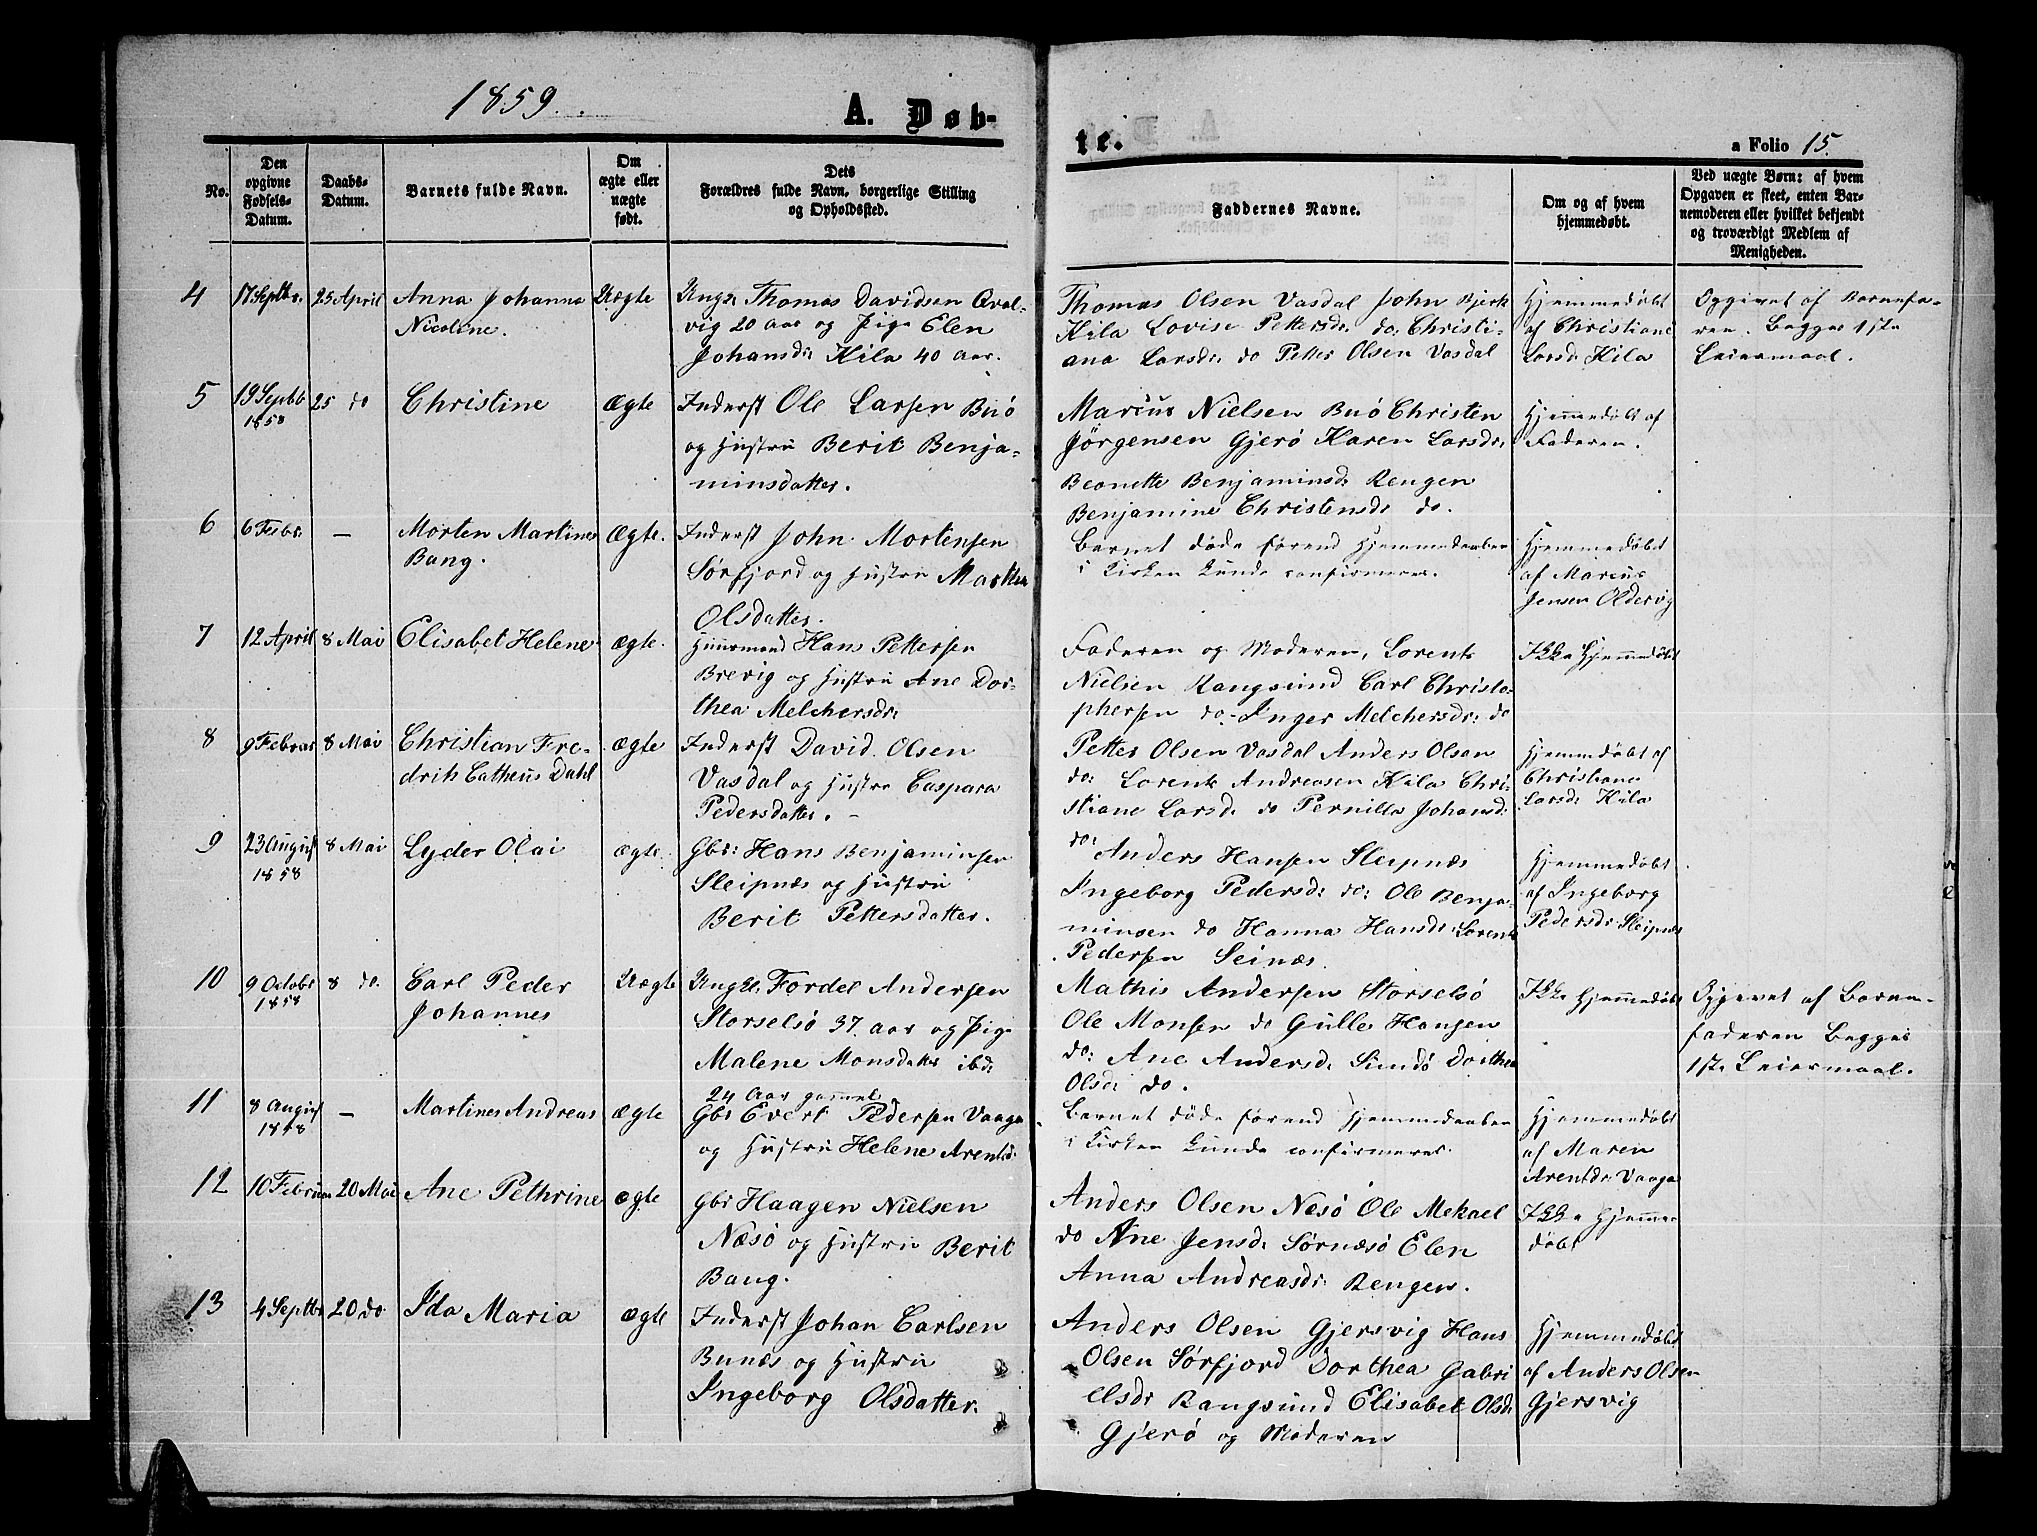 1859.
A. Døb-
te.
a Folio 15.
No.
Den
opgivne
Fødsels-
Datum.
Daabs-
Datum.
Barnets fulde Navn.
Om
ægte eller
uægte
født.
Dets
Forældres fulde Navn, borgerlige Stilling
og Opholdssted.
Faddernes Navne.
Om og af hvem
hjemmedøbt.
Ved uægte Børn: af hvem
Opgaven er skeet, enten Bar-
nemoderen eller hvilket bekjendt
og troværdigt Medlem af
Menigheden.
4
17 Septbr.
25 April
Anna Johanna
Nicoline.
Uægte
Ungk: Thomas Davidsen Qval-
vig 20 aar og Pige Elen
Johansd: Kila 40 aar.
Thomas Olsen Vasdal John Bjerk
Kila Lovise Pettersd: do: Christi-
ana Larsd: do Petter Olsen Vasdal
Hjemmedøbt
af Christiane
Larsd: Kila
Opgivet af Barnefa-
ren. Begges 1ste
Leiermaal.
5
19 Septb
1858
25 do
Christine
Ægte
Inderst Ole Larsen Buø
og Hustru Berit Benja-
minsdatter.
Marcus Nielsen Buø Christen
Jörgensen Gjerø Karen Larsd:
Beonette Benjaminsd: Rengen
Benjamine Christensd: do.
Hjemmedøbt af
Faderen.
6
6 Febr.
—
Morten Martines
Bang.
Ægte.
Inderst John Mortensen
Sørfjord og Hustru Marthea
Olsdatter.
Barnet døde førend Hjemmedaaben
i Kirken kunde confirmeres.
Hjemmedøbt
af Marcus
Jensen Oldervig
7
12 April
8 Mai
Elisabet Helene
ægte.
Huusmand Hans Pettersen
Brevig og Hustru Ane Dor-
thea Melchersd:
Faderen og Moderen, Lorents
Nielsen Rangsund Carl Christo-
phersen do- Inger Melchersd: do
Ikke Hjemmedøbt
8
9 Februar
8 Mai
Christian Fre-
drik Catheus Dahl
ægte
Inderst David Olsen
Vasdal og Hustru Caspara
Pedersdatter. -
Petter Olsen Vasdal Anders Olsen
do: Lorents Andreasen Kila Chri-
stiane Larsd: do Pernilla Johansd:
do:
Hjemmedøbt af
Christiane
Larsd: Kila
9
23 August
1858
8 Mai
Lyder Olai
ægte
Gbr: Hans Benjaminsen
Sleipnæs og Hustru
Berit Pettersdatter.
Anders Hansen Sleipnæs
Ingeborg Pedersd: do: Ole Benja-
minsen do Hanna Hansd: Lorents
Pedersen Seinæs.
Hjemmedøbt
af Ingeborg
Pedersd: Sleipnæs
10
9 Octobr
1858
8 do.
Carl Peder
Johannes
Uægte
Ungk: Fordel Andersen
Storselsø 37 aar og Pige
Malene Monsdatter ibd:
24 Aar gammel
Mathis Andersen Storselsö
Ole Monsen do Gulle Hansen
do: Ane Andersd: Sundö Dorthea
Olsd: do.
Ikke Hjemmedøbt
Opgivet af Barne-
faderen Begges
1ste Leiermaal.
11
8 August
1858
—
Martines Andreas
ægte
Gbr Evert Pedersen Vaaga
og Hustru Helene Arentsd:
Barnet døde førend Hjemmedaaben
i Kirken kunde confirmeres.
Hjemmedøbt
af Maren
Arentd: Vaaga
12
10 Februar
20 Mai
Ane Pethrine
ægte
Gbr Haagen Nielsen
Næsö og Hustru Berit
Bang.
Anders Olsen Næsö Ole Mekael
do Ane Jensd: Sørnæsø Elen
Anna Andreasd: Rengen.
Ikke Hjemme-
døbt
13
4 Septbr
20 do
Ida Maria
ægte
Inderst Johan Carlsen
Bunæs og Hustru
Ingeborg Olsdatter.
Anders Olsen Gjersvig Hans
Olsen Sørfjord Dorthea Gabri
elsd: Rangsund Elisabet Olsd:
Gjerø og Moderen
Hjemmedøbt
af Anders Olsen
Gjersvig